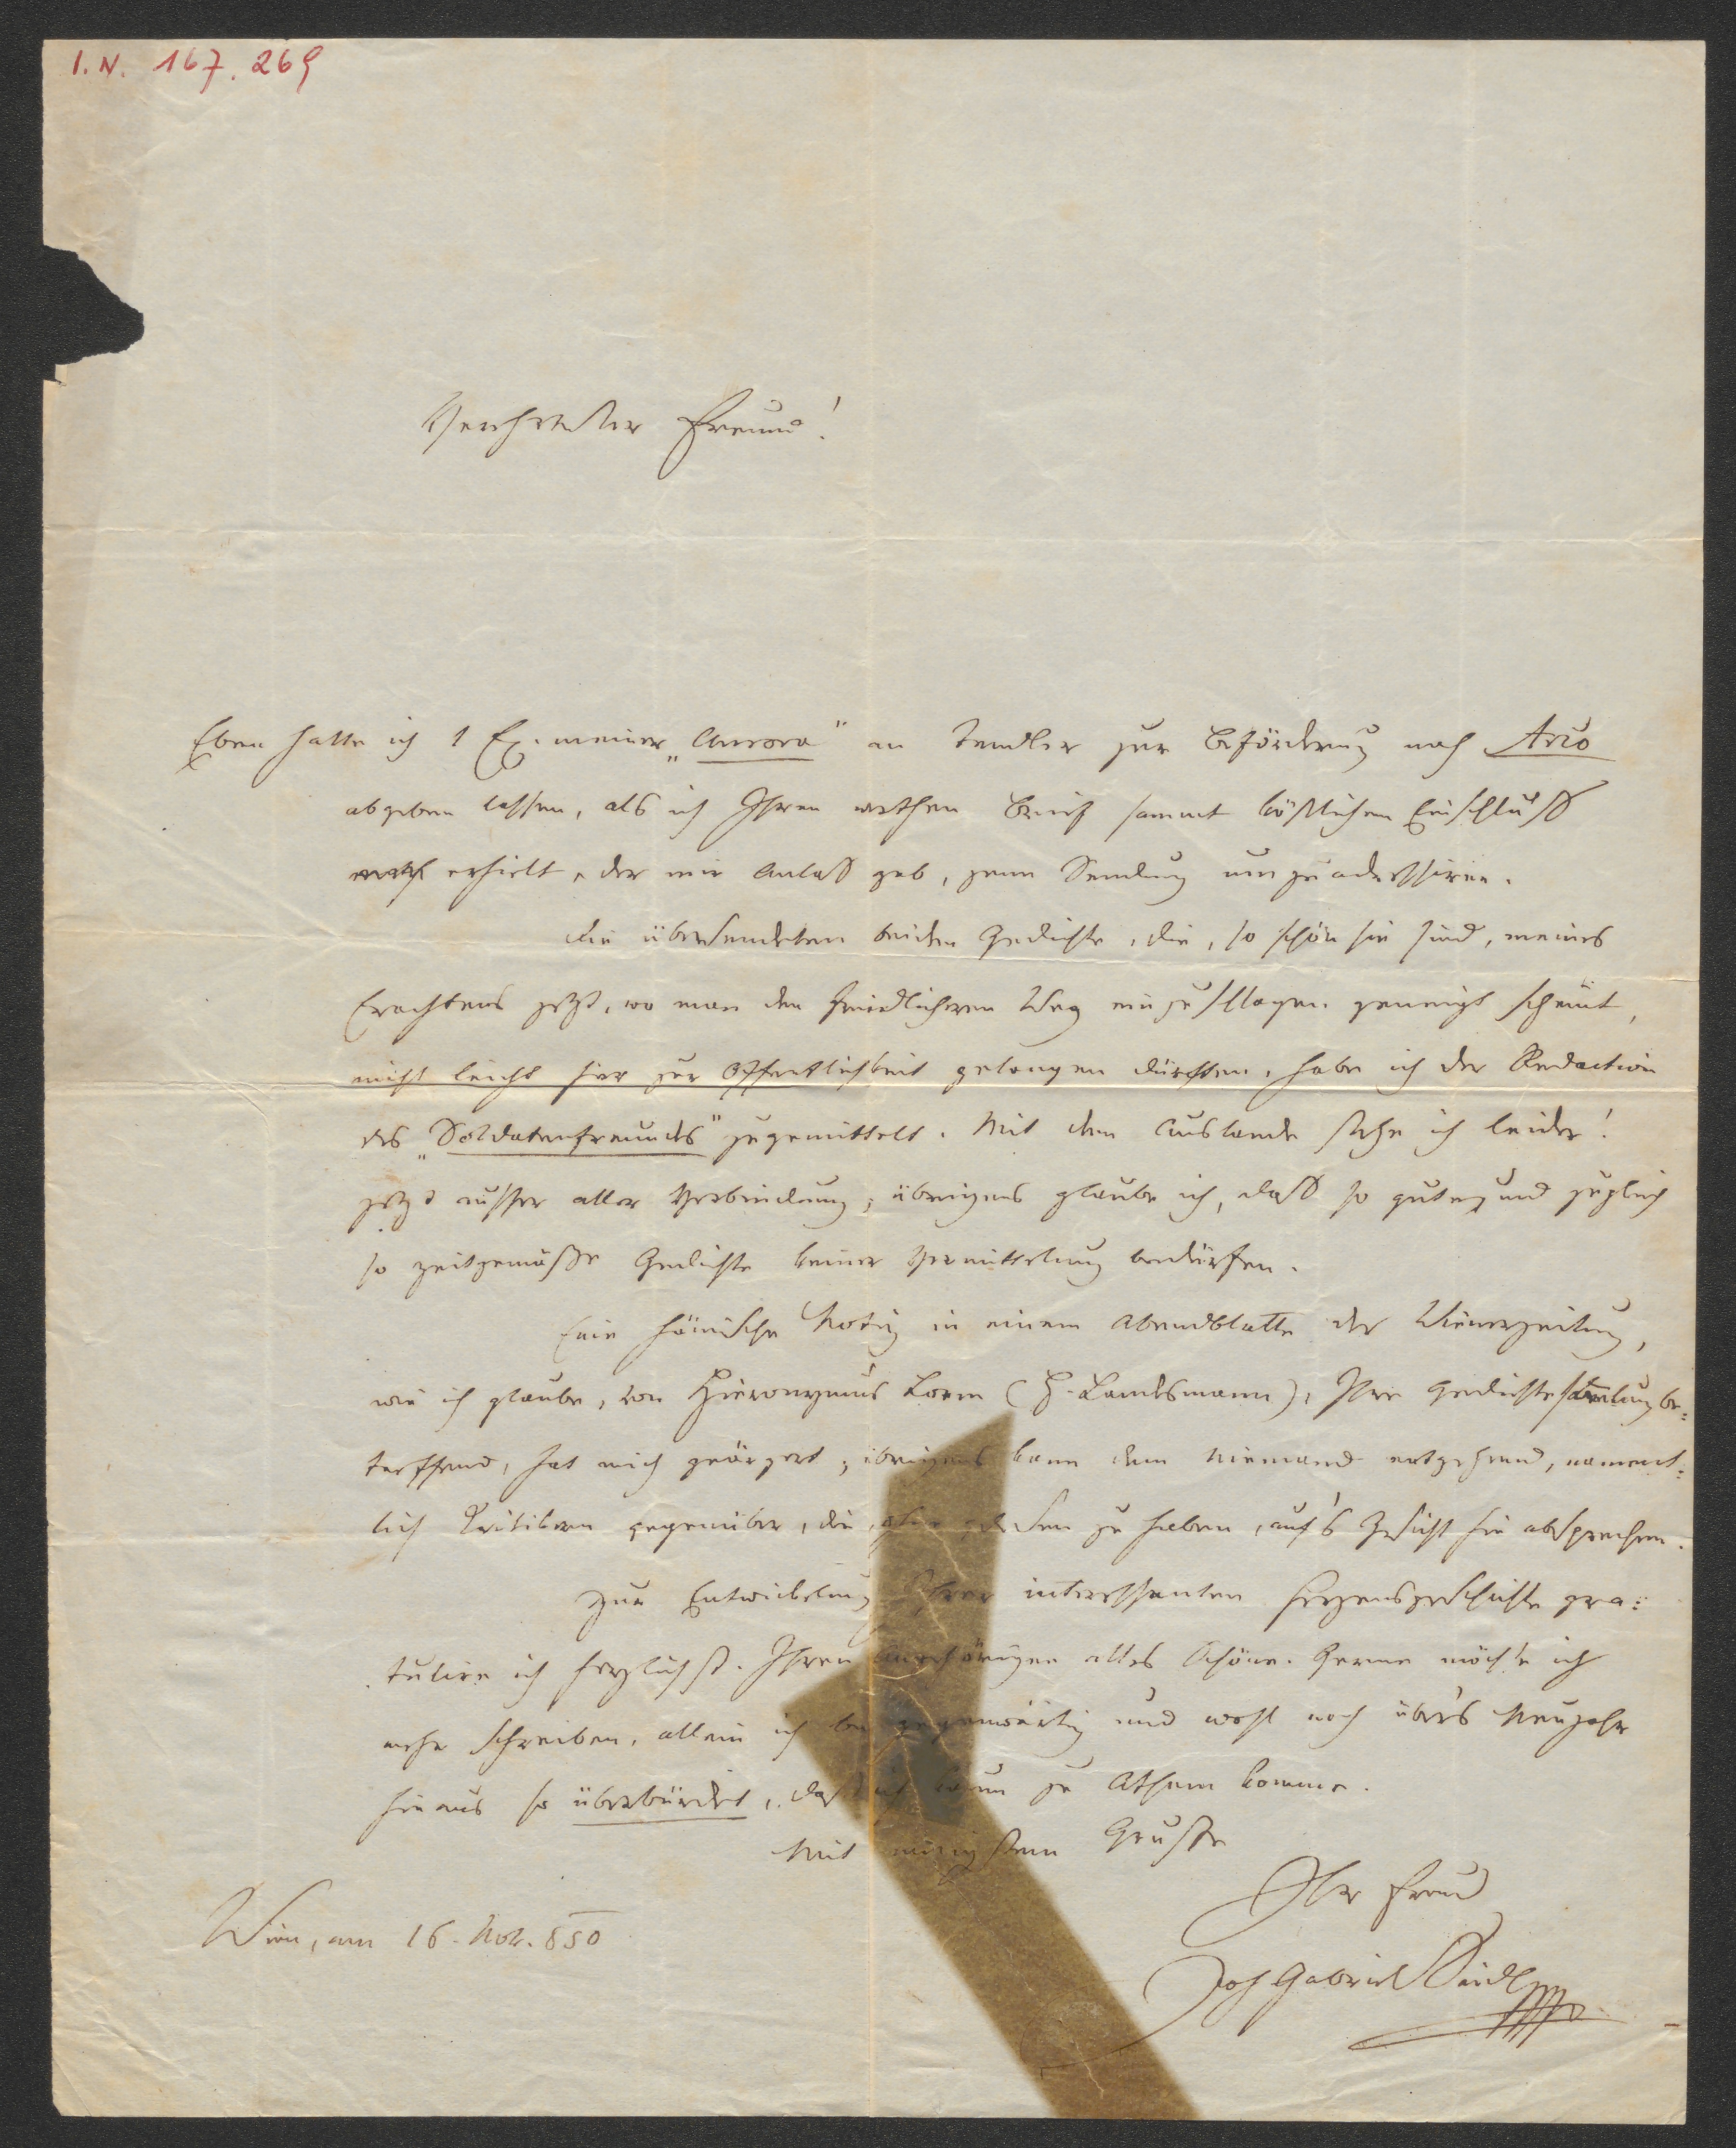 I. N. 167.269
Verehrtester Freund!
Eben hatte ich 1 Ex. meiner „Aurora" an Tendler zur Beförderung nach Arco
abgeben lassen, als ich Ihren werthen Brief sammt köstlichem Einschluß
erhielt, der mir Anlaß gab, jene Sendung umzuadressiren.
Die übersendeten beiden Gedichte, die, so schön sie sind, meines
Erachtens jetzt, wo man den friedlicheren Weg einzuschlagen geneigt scheint,
nicht leicht hier zur Öffentlichkeit gelangen dürften, habe ich der Redaction
des „Soldatenfreunds" zugemittelt. Mit dem Auslande stehe ich leider!
jetzt ausser aller Verbindung; übrigens glaube ich, daß so gute, und zugleich
so zeitgemäße Gedichte keiner Vermittelung bedürfen.
Eine hämische Notiz in einem Abendblatte der Wienerzeitung,
wie ich glaube, von Hieronymus Lorm (H. Landsmann), Ihre Gedichtesammlung be=
treffend, hat mich geärgert; übrigens kann dem Niemand entgehen, nament=
lich Kritikern gegenüber, die, ohne gelesen zu haben, auf's Gesicht hin absprechen.
Zur Entwickelung Ihrer interessanten Herzensgeschichte gra=
tulire ich herzlichst. Ihren Angehörigen alles Schöne. Gerne möchte ich
mehr schreiben, allein ich bin gegenwärtig und wohl noch über's Neujahr
hinaus so überbürdet, daß ich kaum zu Athem komme.
Mit innigstem Gruße
Ihr Freund
Joh Gabriel Seidl
Wien, am 16. Nov. 850